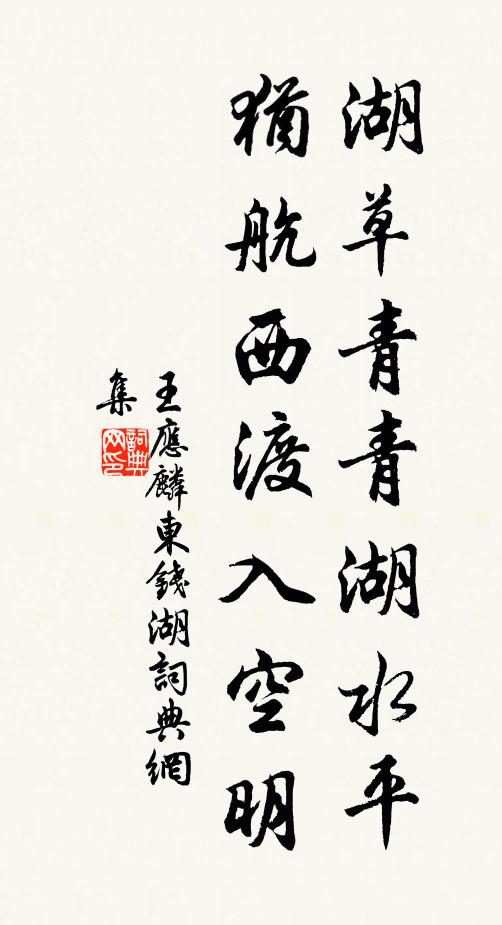 湖草青青湖水平
猶航西渡入空明
王應麟東錢湖詞典網
集
詞典網印